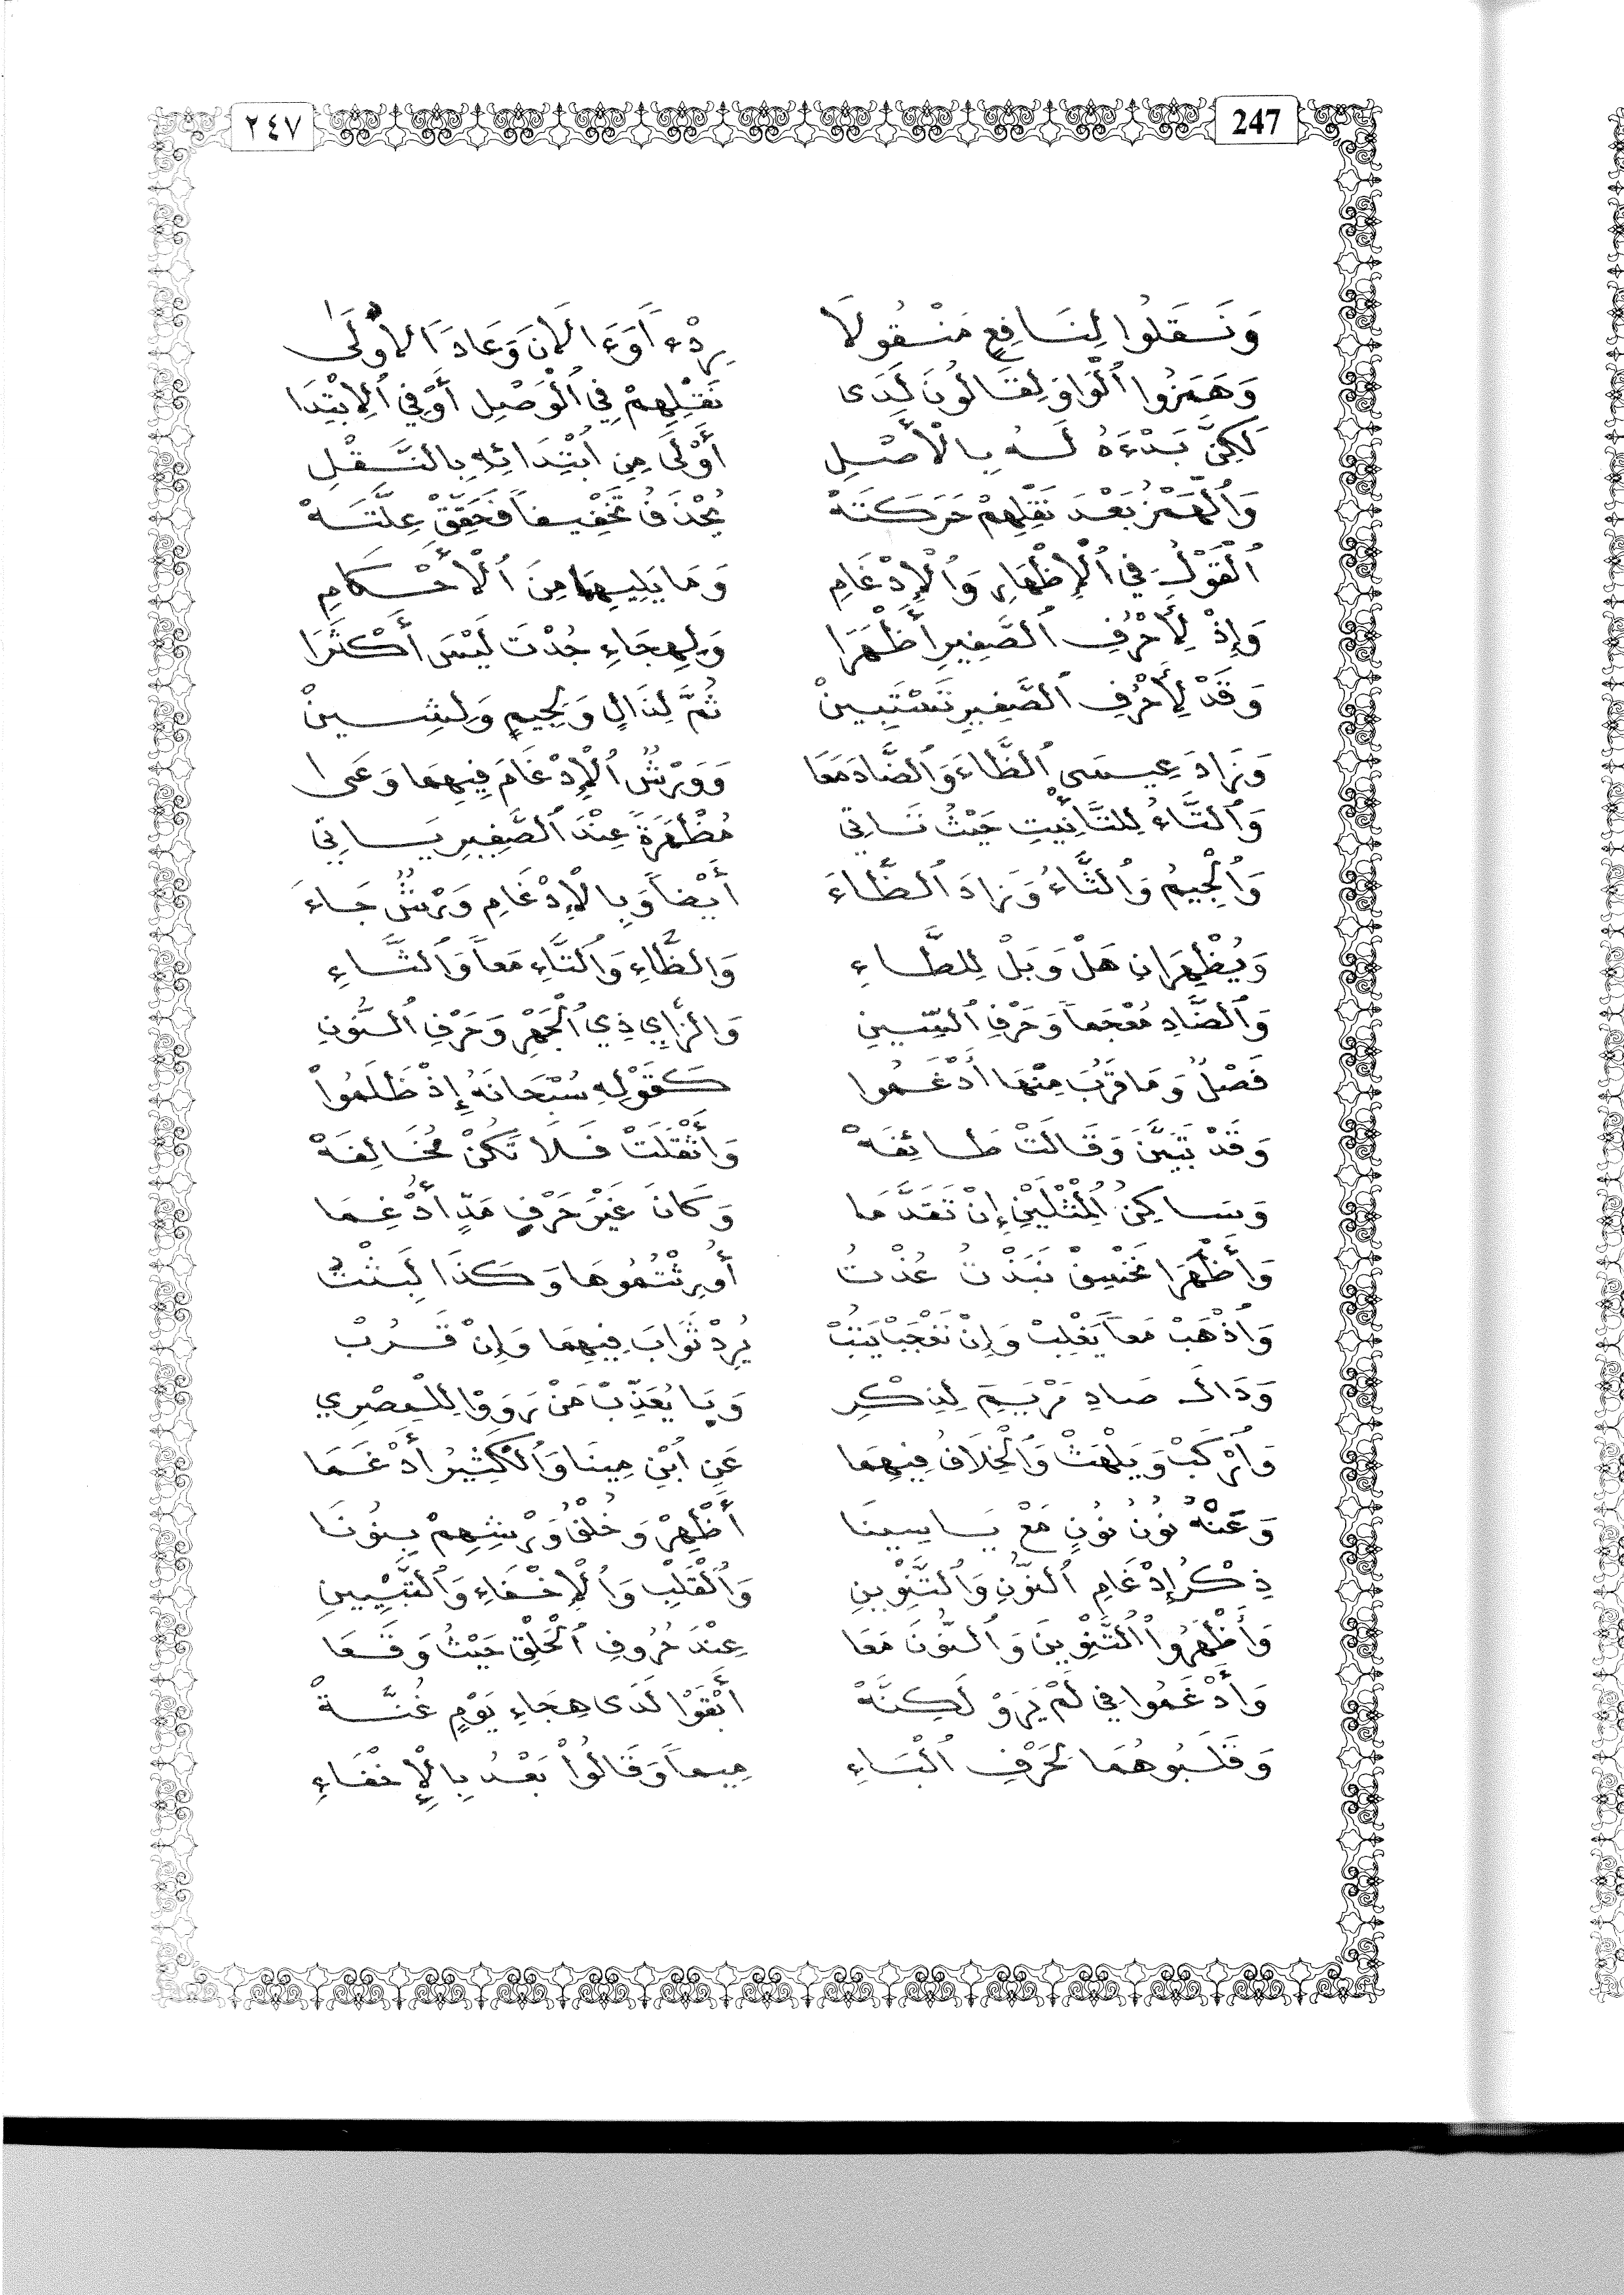 247 ٢٤٧
وَنَقَلُوا لِنَافِعٍ مَنْقُولَا رِدْءاً وَءَالَانَ وَعَاداً الُاولَى
وَهَمَزُوا ٱلْوَاوَ لِقَالُونَ لَدَى نَقْلِهِمْ فِي ٱلْوَصْلِ أَوْ فِي ٱلِابْتِدَا
لَكِنَّ بَدْءَهُ لَهُ بِالْأَصْلِ أَوْلَى مِنِ ٱبْتِدَائِهِ بِالنَّقْلِ
وَٱلْهَمْزُ بَعْدَ نَقْلِهِمْ حَرَكَتَهْ يُحْذَفُ تَخْفِيفاً فَحَقِّقْ عِلَّتَهْ
ٱلْقَوْلُ فِي ٱلْإِظْهَارِ وَٱلْإِدْغَامِ وَمَا يَلِيهِمَا مِنَ ٱلْأَحْكَامِ
وَإِذْ لِأَحْرُفِ ٱلصَّفِيرِ أَظْهَرَا وَلِهِجَاءِ جُدْتَ لَيْسَ أَكْثَرَا
وَقَدْ لِأَحْرُفِ ٱلصَّفِيرِ تَسْتَبِينْ ثُمَّ لِذَالٍ وَلِجِيمٍ وَلِشِينْ
وَزَادَ عِيسَى ٱلظَّاءَ وَٱلضَّادَ مَعَا وَوَرْشٌ ٱلْإِدْغَامَ فِيهِمَا وَعَى
وَٱلتَّاءُ لِلتَّأْنِيثِ حَيْثُ تَاتِي مُظْهَرَةً عِنْدَ ٱلصَّفِيرِ يَاتِي
وَٱلْجِيمُ وَٱلثَّاءُ وَزَادَ ٱلظَّاءَ أَيْضاً وَبِالْإِدْغَامِ وَرْشٌ جَاءَ
وَيُظْهِرَانِ هَلْ وَبَلْ لِلطَّاءِ وَالظَّاءِ وَٱلتَّاءِ مَعاً وَٱلثَّاءِ
وَٱلضَّادِ مُعْجَماً وَحَرْفِ ٱلسِّينِ وَالزَّايِ ذِي ٱلْجَهْرِ وَحَرْفِ ٱلنُّونِ
فَصْلٌ وَمَا قَرُبَ مِنْهَا أَدْغَمُوا كَقَوْلِهِ سُبْحَانَهُ إِذْ ظَلَمُواْ
وَقَدْ تَبَيَّنَ وَقَالَتْ طَائِفَهْ وَأَثْقَلَتْ فَلَا تَكُنْ مُخَالِفَهْ
وَسَاكِنُ ٱلْمِثْلَيْنِ إِنْ تَقَدَّمَا وَكَانَ غَيْرَ حَرْفِ مَدٍّ أُدْغِمَا
وَأَظْهَرَا نَخْسِفْ نَبَذْتُ عُذْتُ أُورِثْتُمُوهَا وَكَذَا لَبِثْتُ
وَٱذْهَبْ مَعاً يَغْلِبْ وَإِنْ تَعْجَبْ يَتُبْ يُرِدْ ثَوَابَ فِيهِمَا وَإِنْ قَرُبْ
وَدَالَ صَادِ مَرْيَمَ لِذِكْرِ وَبَا يُعَذِّبْ مَنْ رَوَوْا لِلْمِصْرِي
وَٱرْكَبْ وَيَلْهَثْ وَٱلْخِلَافُ فِيهِمَا عَنِ ٱبْنِ مِينَا وَٱلْكَثِيرُ أَدْغَمَا
وَعَنْهُ نُونُ نُونِ مَعْ يَاسِينَا أَظْهِرْ وَخُلْفُ وَرْشِهِمْ بِنُونَا
ذِكْرُ إِدْغَامِ ٱلنُّونِ وَٱلتَّنْوِينِ وَٱلْقَلْبِ وَٱلْإِخْفَاءِ وَٱلتَّبْيِينِ
وَأَظْهَرُوا ٱلتَّنْوِينَ وَٱلنُّونَ مَعَا عِنْدَ حُرُوفِ ٱلْحَلْقِ حَيْثُ وَقَعَا
وَأَدْغَمُوا فِي لَمْ يَرَوْ لَكِنَّهْ أَبْقَوْا لَدَى هِجَاءِ يَوْمٍ غُنَّهْ
وَقَلَبُوهُمَا لِحَرْفِ ٱلْبَاءِ مِيماً وَقَالُواْ بَعْدُ بِالْإِخْفَاءِ